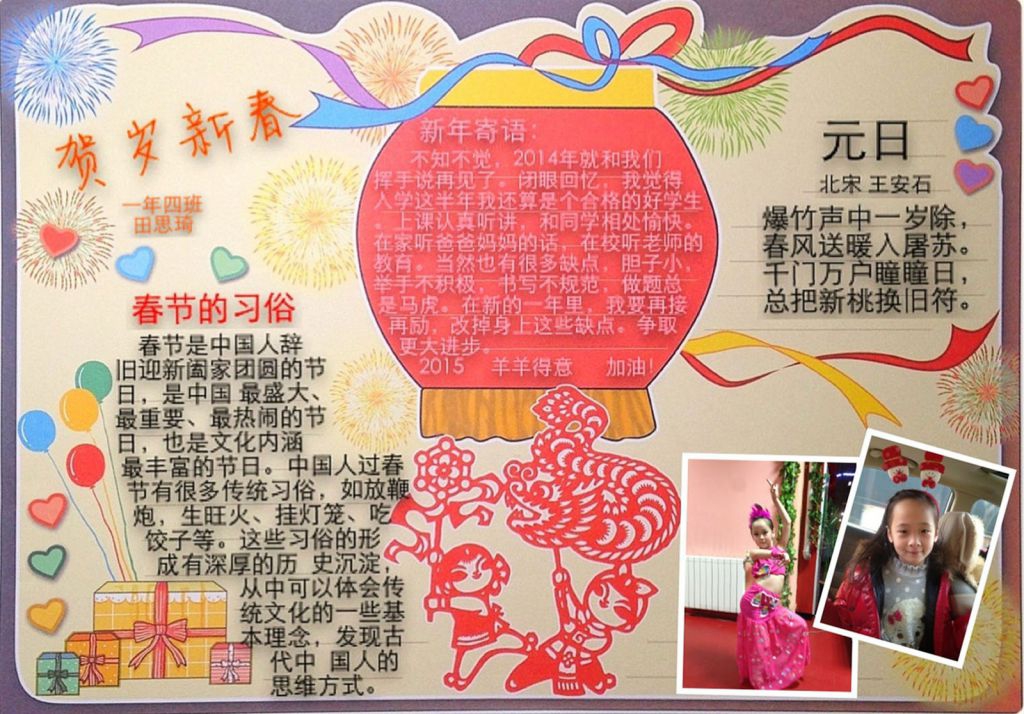 贺岁新春
一年四班
田思琦
春节的习俗
春节是中国人辞
旧迎新阖家团圆的节
日，是中国 最盛大、
最重要、最热闹的节
日，也是文化内涵
最丰富的节日。中国人过春
节有很多传统习俗，如放鞭
炮，生旺火、挂灯笼、吃
饺子等。这些习俗的形
成有深厚的历 史沉淀，
从中可以体会传
统文化的一些基
本理念，发现古
代中 国人的
思维方式。
新年寄语：
不知不觉，2014年就和我们
挥手说再见了。闭眼回忆，我觉得
入学这半年我还算是个合格的好学生
。上课认真听讲，和同学相处愉快。
在家听爸爸妈妈的话，在校听老师的
教育。当然也有很多缺点，胆子小，
举手不积极，书写不规范，做题总
是马虎。在新的一年里，我要再接
再励，改掉身上这些缺点。争取
更大进步。
2015 羊羊得意 加油!
元日
北宋 王安石
爆竹声中一岁除，
春风送暖入屠苏。
千门万户瞳瞳日，
总把新桃换旧符。